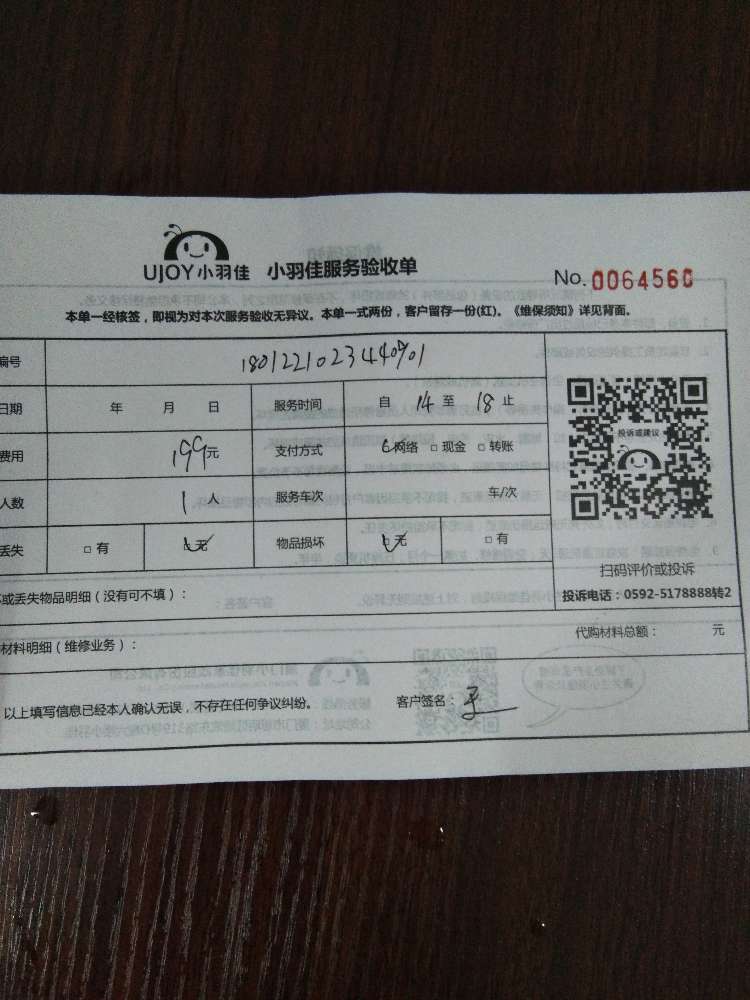 UJOY小羽佳 小羽佳服务验收单 No. 0064560
本单一经核签，即视为对本次服务验收无异议。本单一式两份，客户留存一份(红)。《维保须知》详见背面。
编号
日期 年 月 日 服务时间 自 14 至 18 止
费用 199元 支付方式 网络 □ 现金 □ 转账
人数 1 人 服务车次 车/次
丢失 □ 有 无 物品损坏 无 □ 有
投诉或建议
扫码评价或投诉
投诉电话：0592-5178888转2
或丢失物品明细（没有可不填）：
材料明细（维修业务）： 代购材料总额： 元
以上填写信息已经本人确认无误，不存在任何争议纠纷。 客户签名：